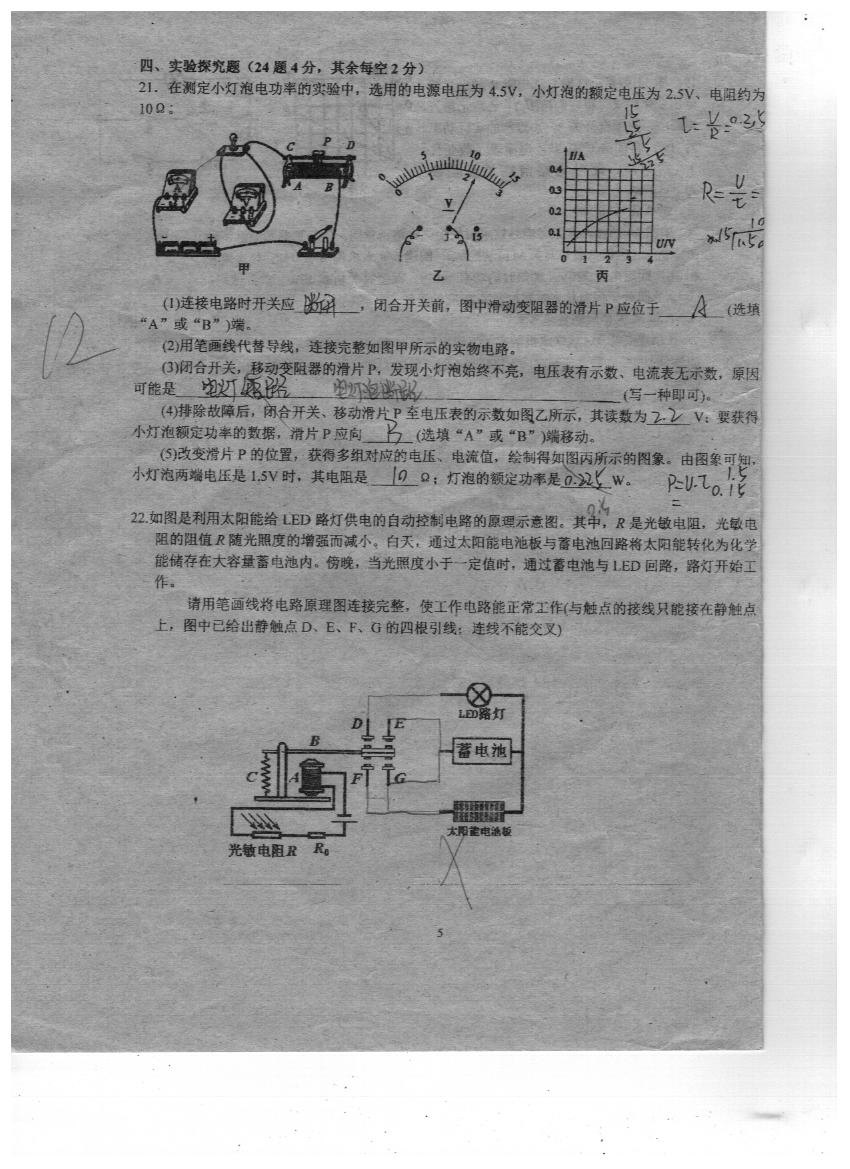 四、实验探究题（24 题 4 分，其余每空 2 分）
21．在测定小灯泡电功率的实验中，选用的电源电压为 4.5V，小灯泡的额定电压为 2.5V、电阻约为
10Ω。
C P D
A B
甲
0 5 10 15
0 1 2 3
V
- 3 15
乙
I/A
0.4
0.3
0.2
0.1
0 1 2 3 4
U/V
丙
R=U/I=
(1)连接电路时开关应 断开 ，闭合开关前，图中滑动变阻器的滑片 P 应位于 A (选填
“A”或“B”)端。
(2)用笔画线代替导线，连接完整如图甲所示的实物电路。
(3)闭合开关，移动变阻器的滑片 P，发现小灯泡始终不亮，电压表有示数、电流表无示数，原因
可能是 (写一种即可)。
(4)排除故障后，闭合开关、移动滑片 P 至电压表的示数如图乙所示，其读数为 2.2 V；要获得
小灯泡额定功率的数据，滑片 P 应向 B (选填“A”或“B”)端移动。
(5)改变滑片 P 的位置，获得多组对应的电压、电流值，绘制得如图丙所示的图象。由图象可知，
小灯泡两端电压是 1.5V 时，其电阻是 10 Ω；灯泡的额定功率是 0.225 W。
P=U·I
1.5
0.15
12
22.如图是利用太阳能给 LED 路灯供电的自动控制电路的原理示意图。其中，R 是光敏电阻，光敏电
阻的阻值 R 随光照度的增强而减小。白天，通过太阳能电池板与蓄电池回路将太阳能转化为化学
能储存在大容量蓄电池内。傍晚，当光照度小于一定值时，通过蓄电池与 LED 回路，路灯开始工
作。
请用笔画线将电路原理图连接完整，使工作电路能正常工作(与触点的接线只能接在静触点
上，图中已给出静触点 D、E、F、G 的四根引线；连线不能交叉)
LED路灯
D E
B
蓄电池
C A F G
太阳能电池板
光敏电阻R R₀
5